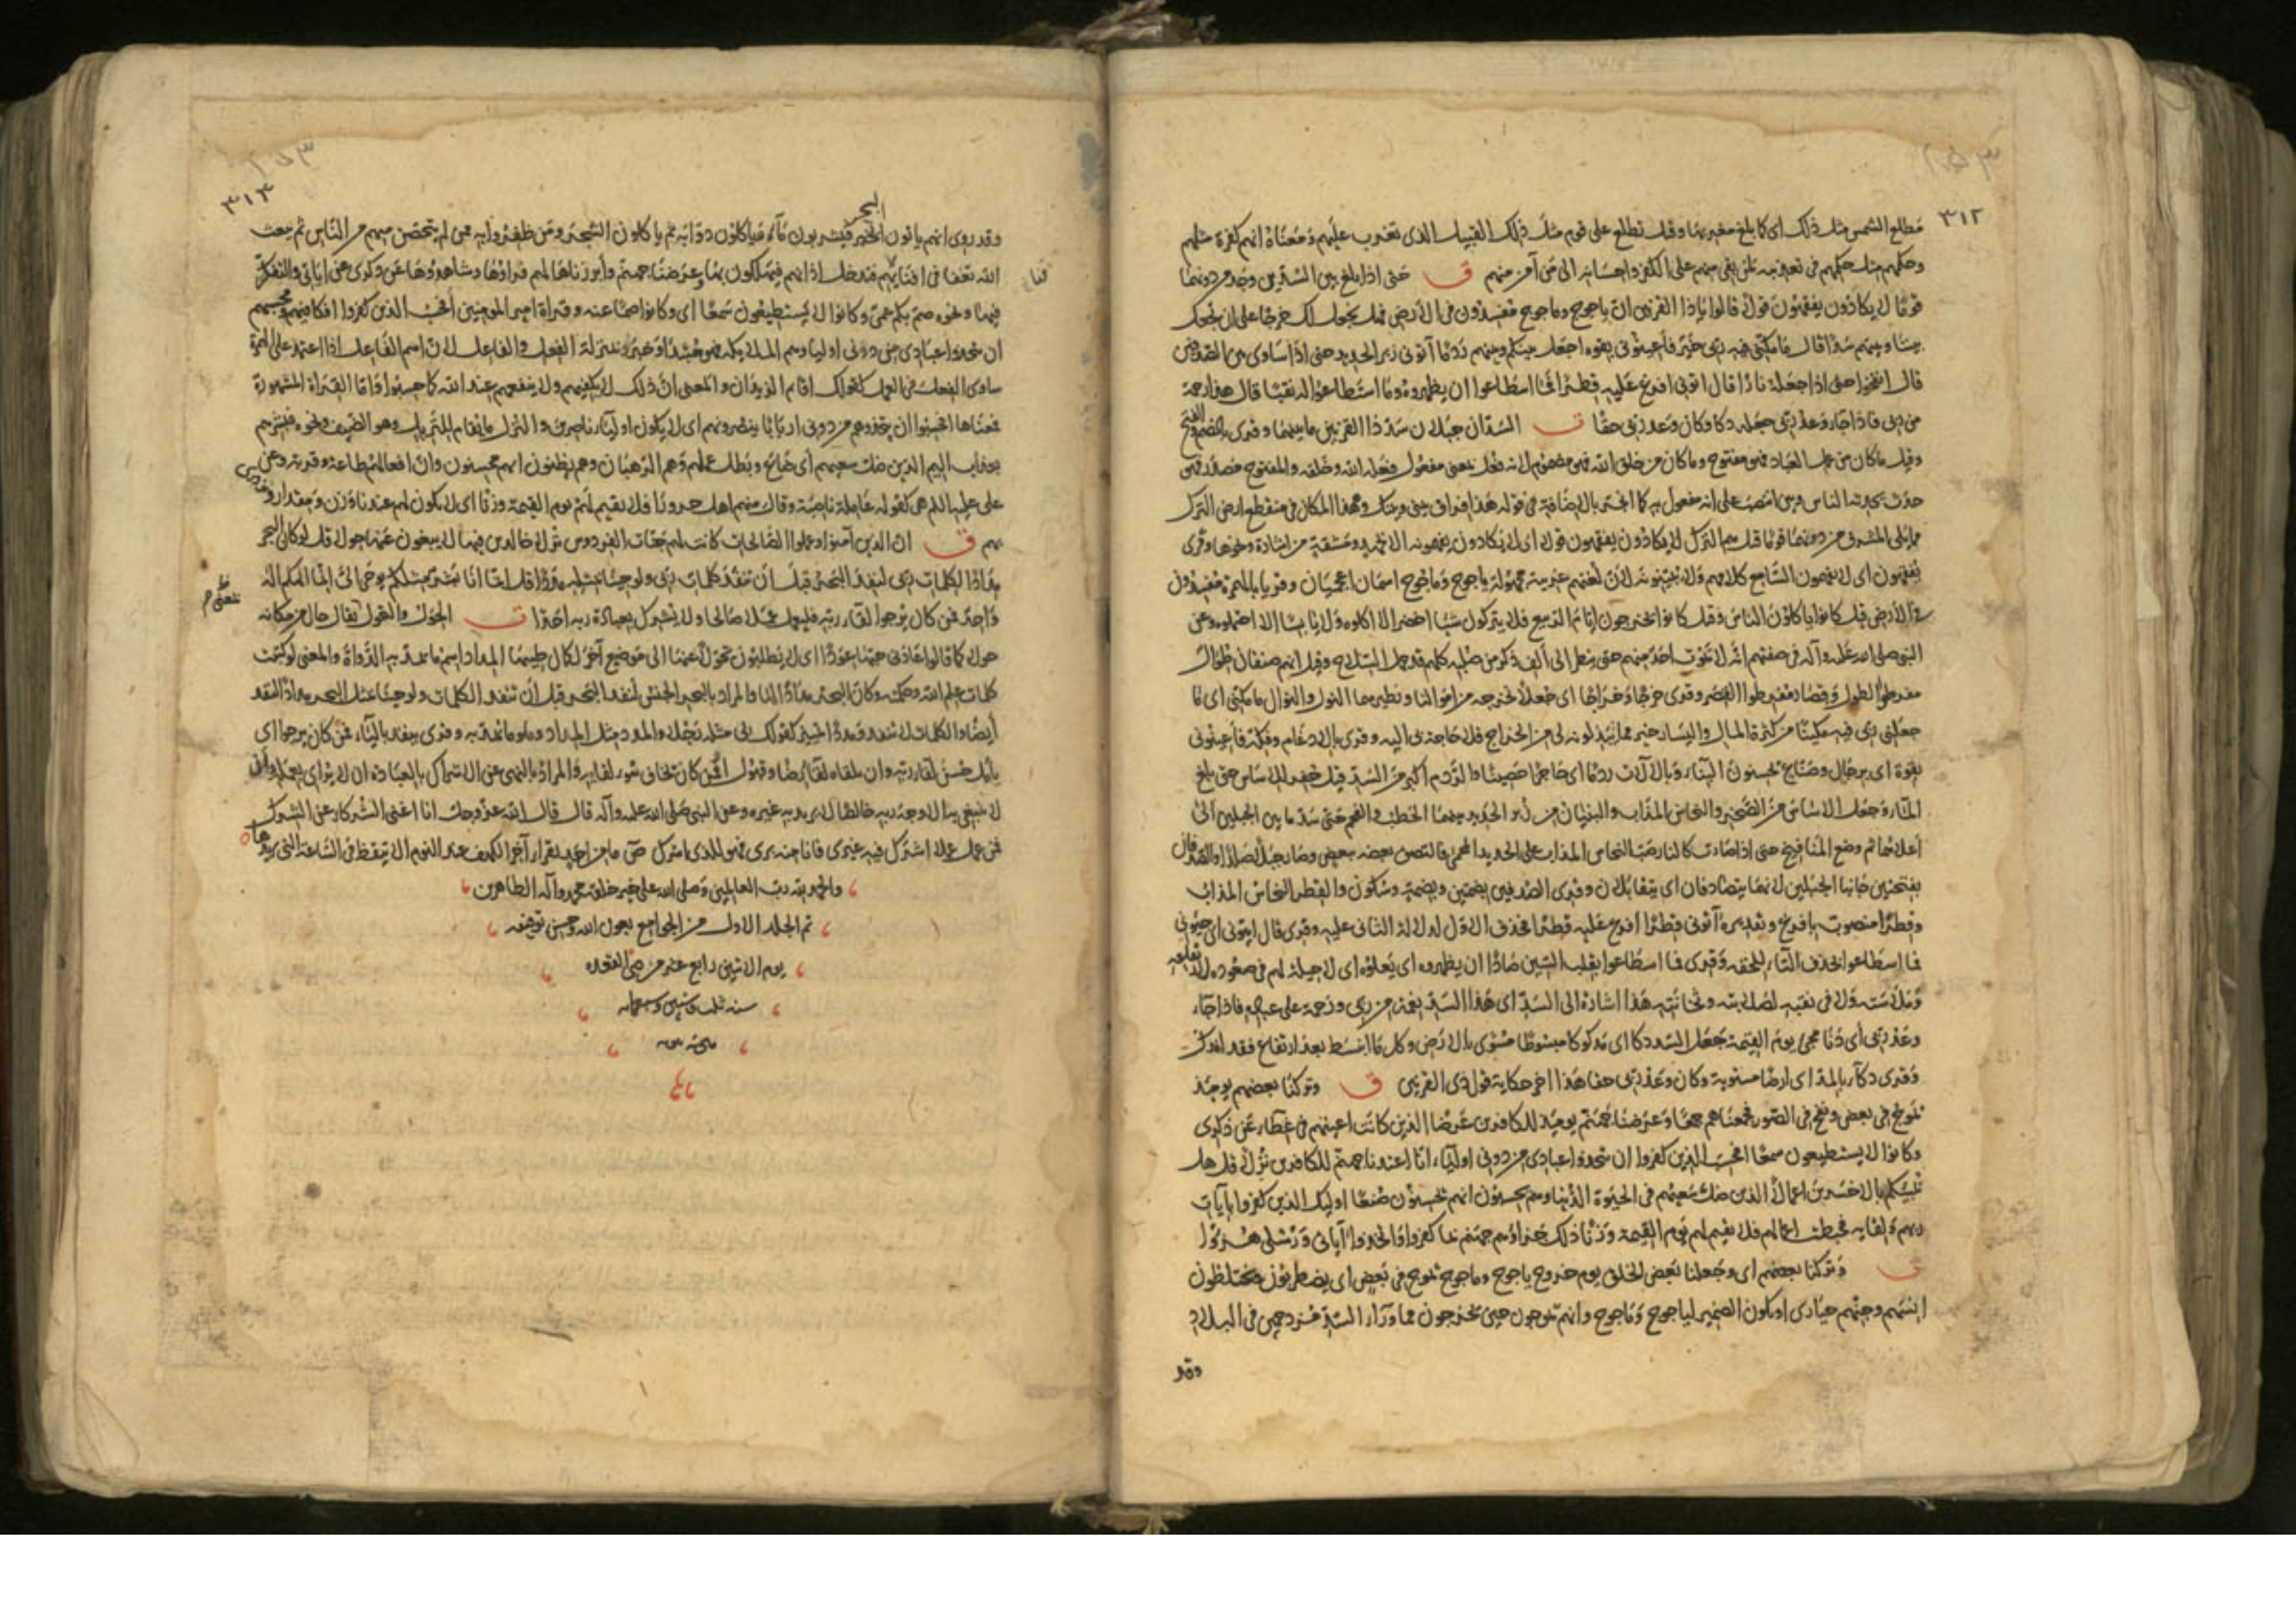 ٣١٢
مطلع الشمس مثل ذلك اى كما بلغ مغربها وقيل تطلع على قوم مثل ذلك القبيل الذى تغرب عليهم ومعناه انهم كفرة مثلهم
وحكمهم مثل حكمهم فى تعذيبه لمن بقى منهم على الكفر واحسانه الى من آمن منهم ق حتى اذا بلغ بين السدين وجد من دونهما
قوما لا يكادون يفقهون قولا قالوا ياذا القرنين ان ياجوج وماجوج مفسدون فى الأرض فهل نجعل لك خرجا على ان تجعل
بيننا وبينهم سدا قال ما مكنى فيه ربى خير فأعينونى بقوة اجعل بينكم وبينهم ردما آتونى زبر الحديد حتى اذا ساوى بين الصدفين
قال انفخوا حتى اذا جعله نارا قال اتونى افرغ عليه قطرا فما اسطاعوا ان يظهروه وما استطاعوا له نقبا قال هذا رحمة
من ربى فاذا جاء وعد ربى جعله دكا وكان وعد ربى حقا ت السدان جبلان سد ذا القرنين ما بينهما وقرى بالضم والفتح
وقيل ما كان من عمل العباد فهو مفتوح وما كان من خلق الله فهو مضموم لانه فعل بمعنى مفعول فعله الله وخلقه والمفتوح مصدر فهو
حدث يحدثه الناس وبين انتصب على انه مفعول به كما انجر بالاضافة فى قوله هذا فراق بينى وبينك وهذا المكان فى منقطع ارض الترك
مما يلى المشرق من دونهما قوما قيل هم الترك لا يكادون يفقهون قولا اى لا يكادون يفهمونه الا بجهد ومشقة من اشارة ونحوها وقرى
يفقهون اى لا يفهمون السامع كلامهم ولا يبينونه لأن لغتهم غريبة مجهولة ياجوج وماجوج اسمان اعجميان وقريا بالهمزة مفسدون
فى الأرض قيل كانوا ياكلون الناس وقيل كانوا يخرجون ايام الربيع فلا يتركون شيا اخضر الا اكلوه ولا يابسا الا احتملوه وعن
النبى صلى الله عليه وآله فى صفتهم انه لا يموت احد منهم حتى ينظر الى ألف ذكر من صلبه كلهم قد حمل السلاح وقيل انهم صنفان طوال
مفرطوا الطول وقصار مفرطوا القصر وقرى خرجا وخراجا اى جعلا نخرجه من اموالنا ونظيرهما النول والنوال ما مكنى اى ما
جعلنى ربى فيه مكينا من كثرة المال واليسار خير مما تبذلونه لى من الخراج فلا حاجة بى اليه وقرى بالادغام وفكه فأعينونى
بقوة اى برجال وصناع يحسنون البناء وبالآلات ردما اى حاجزا حصينا والردم اكبر من السد قيل حفر للاساس حتى بلغ
الماء وجعل الاساس من الصخر والنحاس المذاب والبنيان من زبر الحديد بينهما الحطب والفحم حتى سد ما بين الجبلين الى
أعلاهما ثم وضع المنافيخ حتى اذا صارت كالنار صب النحاس المذاب على الحديد المحمى فالتصق بعضه ببعض وصار جبلا صلدا والصدفان
بفتحتين جانبا الجبلين لانهما يتصادفان اى يتقابلان وقرى الصدفين بضمتين وبضمة وسكون والقطر النحاس المذاب
وقطرا منصوب بافرغ وتقديره آتونى قطرا افرغ عليه قطرا فحذف الاول لدلالة الثانى عليه وقرى قال ايتونى اى جيئونى
فما اسطاعوا بحذف التاء للخفة وقرى فما اصطاعوا بقلب السين صادا ان يظهروه اى يعلوه اى لا حيلة لهم فى صعوده لارتفاعه
وملاسته ولا فى نقبه لصلابته وثخانته هذا اشارة الى السد اى هذا السد نعمة من ربى ورحمة على عباده فاذا جاء
وعد ربى أى دنا مجئ يوم القيمة جعل السد دكا اى مدكوكا مبسوطا مسوى بالارض وكل ما انبسط بعد ارتفاع فقد اندك
وقرى دكاء بالمد اى ارضا مستوية وكان وعد ربى حقا هذا اخر حكاية قول ذى القرنين ق وتركنا بعضهم يومئذ
يموج فى بعض ونفخ فى الصور فجمعناهم جمعا وعرضنا جهنم يومئذ للكافرين عرضا الذين كانت اعينهم فى غطاء عن ذكرى
وكانوا لا يستطيعون سمعا افحسب الذين كفروا ان يتخذوا عبادى من دونى اولياء انا اعتدنا جهنم للكافرين نزلا قل هل
ننبئكم بالاخسرين اعمالا الذين ضل سعيهم فى الحيوة الدنيا وهم يحسبون انهم يحسنون صنعا اوليك الذين كفروا بآيات
ربهم ولقايه فحبطت اعمالهم فلا نقيم لهم يوم القيمة وزنا ذلك جزاؤهم جهنم بما كفروا واتخذوا آياتى ورسلى هزوا
ت وتركنا بعضهم اى وجعلنا بعض الخلق يوم خروج ياجوج وماجوج يموج فى بعض اى يضطربون ويختلطون
انسهم وجنهم حيارى او يكون الضمير لياجوج وماجوج وانهم يموجون حين يخرجون مما وراء السد مزدحمين فى البلاد
وقد
٣١٣
البحر
وقد روى انهم ياتون فيشربون ماءه وياكلون دوابه ثم ياكلون الشجر ومن ظفروا به ممن لم يتحصن منهم من الناس ثم يبعث
الله نغفا فى اقفايهم فتدخل اذانهم فيهلكون بها وعرضنا جهنم وأبرزناها لهم فرأوها وشاهدوها عن ذكرى عن آياتى والتفكر
فيها ونحوه صم بكم عمى وكانوا لا يستطيعون سمعا اى وكانوا صما عنه وقراءة امير المومنين أفحسب الذين كفروا افكافيهم ومحسبهم
ان يتخذوا عبادى من دونى اولياء
ساوى الفعل فى العمل كقولك اقائم الزيدان والمعنى ان ذلك لا يكفيهم ولا ينفعهم عند الله كما حسبوا واما القراءة المشهورة
فمعناها افحسبوا ان يتخذوهم من دونى اربابا ينصرونهم اى لا يكون اولياء ناصرين والنزل ما يقام للنزيل وهو الضيف ونحوه فبشرهم
بعذاب اليم الذين ضل سعيهم أى ضاع وبطل عملهم وهم الرهبان وهم يظنون انهم محسنون وان افعالهم طاعة وقربة وعن
على عليه السلام هى كقوله عاملة ناصبة وقال منهم اهل حروراء فلا نقيم لهم يوم القيمة وزنا اى لا يكون لهم عندنا وزن ومقدار
ق ان الذين آمنوا وعملوا الصالحات كانت لهم جنات الفردوس نزلا خالدين فيها لا يبغون عنها حولا قل لو كان البحر
مدادا لكلمات ربى لنفد البحر قبل أن تنفد كلمات ربى ولو جئنا بمثله مددا قل انما انا بشر مثلكم يوحى الى انما الهكم اله
واحد فمن كان يرجوا لقاء ربه فليعمل عملا صالحا ولا يشرك بعبادة ربه احدا ت الحول والتحول يقال حال من مكانه
حولا كما قالوا عادنى حبها عودا اى لا يطلبون تحولا عنها الى موضع آخر لكمال طيبها المداد اسم ما يمد به الدواة والمعنى لو كتبت
كلمات علم الله وحكمته وكان البحر مدادا لها والمراد بالبحر الجنس لنفد البحر قبل أن تنفد الكلمات ولو جئنا بمثل البحر مدادا لنفد
أيضا والكلمات لا تنفد ومددا تمييز كقولك لى مثله رجلا والمدد مثل المداد وهو ما يمد به وقرى ينفد بالياء، فمن كان يرجوا اى
يأمل حسن لقاء ربه وان يلقاه لقاء رضا وقبول افمن كان يخاف سوء لقايه والمراد بالنهى عن الاشراك بالعبادة ان لا يرائى بعمله وأن
لا يبتغى به الا وجه ربه خالصا لا يريد به غيره وعن النبى صلى الله عليه وآله قال قال الله عز وجل انا اغنى الشركاء عن الشرك
فمن عمل عملا اشرك فيه غيرى فانا منه برى فهو للذى اشرك ص ما من احد يقرأ آخر الكهف عند النوم الا تيقظ فى الساعة التى يريدها
والحمد لله رب العالمين وصلى الله على خير خلقه محمد وآله الطاهرين
تم الجلد الاول من الجوامع بعون الله وحسن توفيقه
يوم الاثنين رابع عشر من ذى القعده